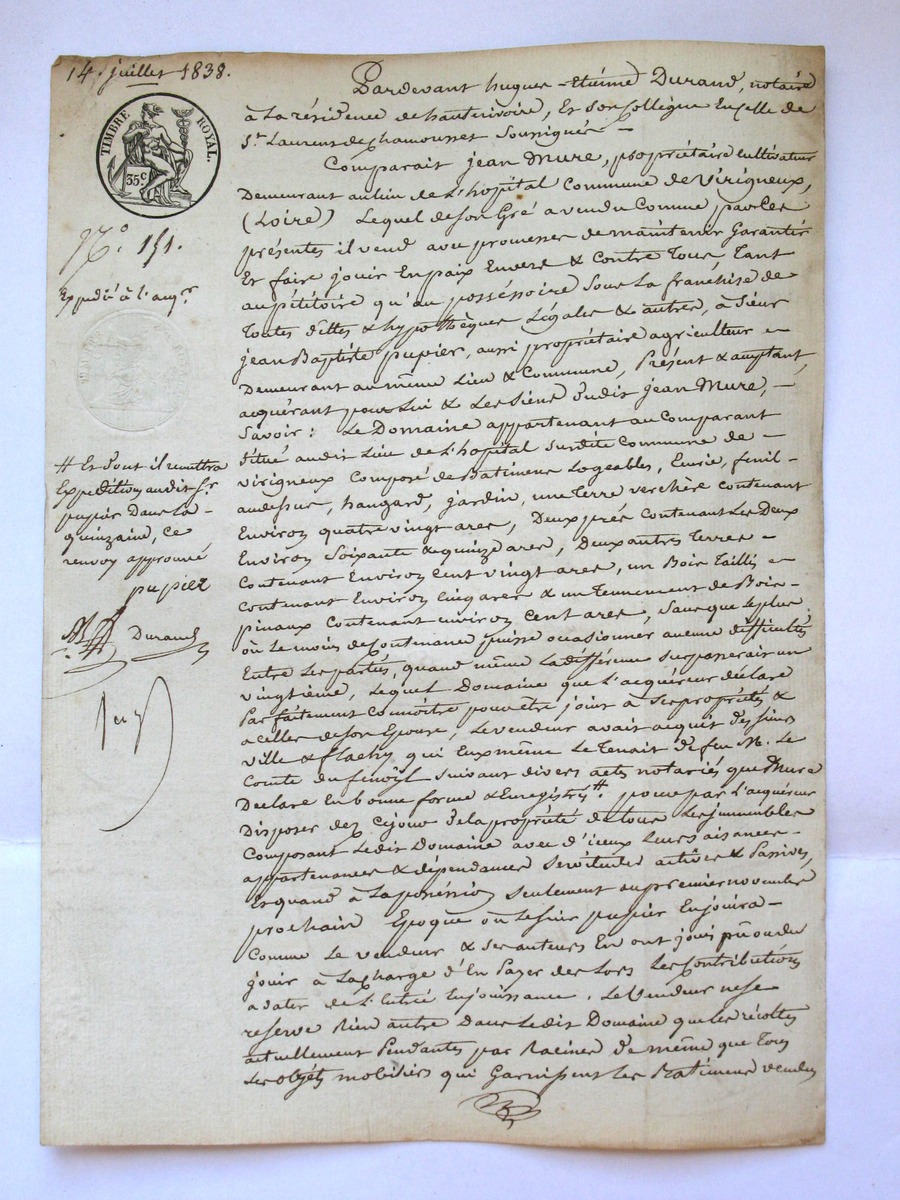 14. juillet 1838.
TIMBRE ROYAL.
35c
N.° 151.
Expédié à l'acqr
# Et dont il remettra
Expédition audit Sr
pupier dans la
quinzaine, ce
renvoy approuvé
pupier
Durand
Pardevant hugues-Etienne Durand, notaire
à La résidence de hauterivoire, Et son Collègue En celle de
St. Laurent de chamousset Soussignés –
Comparait jean Mure, propriétaire cultivateur
Demeurant au lieu de L'hopital Commune de Virigneux,
(Loire) Lequel de son Gré a vendu Comme par Ces
présentes il vend avec promesse de maintenir Garantir
Et faire jouir En paix Envers & Contre Tous, Tant
au pétitoire qu'au possessoire Sous La franchise de
Toutes dettes & hypothèques Légales & autres, à Sieur
jean Baptiste pupier, aussi propriétaire agriculteur –
Demeurant au même Lieu & Commune, Présent & acceptant,
acquérant pour Lui & Les Siens Dudit jean Mure, –
Savoir: Le Domaine appartenant au Comparant
Situé audit Lieu de L'hopital Susdite Commune de –
virigneux Composé de Batimens Logeables, Ecurie, fenil –
au dessus, hangard, jardin, une Terre verchère contenant
Environ quatre vingt ares, Deux prés Contenant Les Deux
Environ Soixante & quinze ares, Deux autres Terres –
Contenant Environ Cent vingt ares, un Bois Taillis –
Contenant Environ Cinq ares & un Tennement de Bois –
pinaux Contenant environ Cent ares, Sans que Le plus
ou Le moins de Contenance puisse occasionner aucune difficultés
Entre Les parties, quand même La différence surpasserait un
vingtième, Lequel Domaine que L'acquéreur déclare
Parfaitement Connoitre pour être joint à Ses propriétés &
a Celles de Son Epouse, Le vendeur avait acquit des Sieurs
ville & flachy qui Eux même Le Tenait De feu M. Le
Comte du fenoÿl suivant divers actes notariés que Mure
Déclare En bonne forme & Enregistrés # pour par L'acquéreur
Disposer dez Cejour De la propriété de tous Les immeubles
Composant Ledit Domaine avec d'iceux Leurs aisances –
appartenances & dépendances Servitudes actives & Passives,
Et quand à La possession Seulement au premier novembre
prochain Epoque ou Le Sieur pupier En jouira –
Comme Le vendeur & Ses auteurs En ont joui pû ou du
jouir à La charge d'En Payer des Lors Les Contributions
a dater de L'Entrée En jouissance. Le Vendeur ne se
reserve Rien autre Dans Ledit Domaine que Les récoltes
actuellement Pendantes par Racines De même que Tous
Les objets mobiliers qui Garnissent Les Batimens vendus